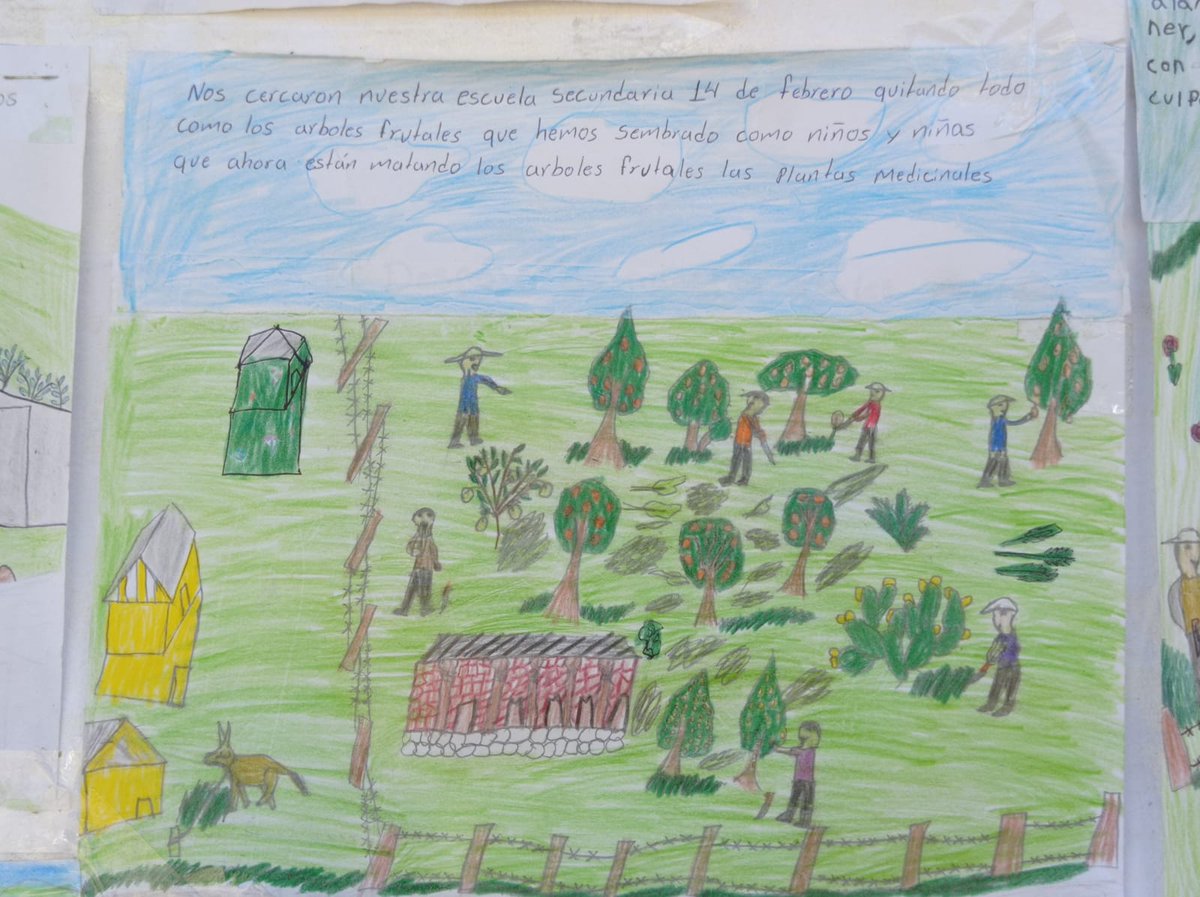 Nos cercaron nuestra escuela secundaria 14 de febrero quitando todo
como los arboles frutales que hemos sembrado como niños y niñas
que ahora están matando los arboles frutales las plantas medicinales
ner,
con